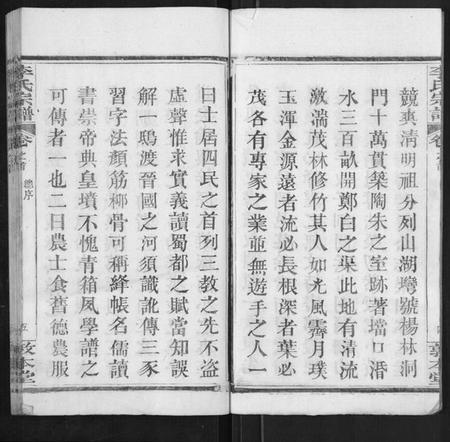 競爽清明祖分列山湖灣號楊林洞
門十萬貫築陶朱之室跡著壋口湑
水三百畝開鄭白之渠此地有清流
激湍茂林修竹其人如光風霽月璞
玉渾金源遠者流必長根深者葉必
茂各有專家之業並無遊手之人一
李氏宗譜
卷首
總序
五
敦本堂
曰士居四民之首列三教之先不盜
虛聲惟求實義讀蜀都之賦當知誤
解一鴟渡晉國之河須識訛傳三豕
習字法顏筋柳骨可稱絳帳名儒讀
書崇帝典皇墳不愧青箱夙學譜之
可傳者一也二曰農士食舊德農服